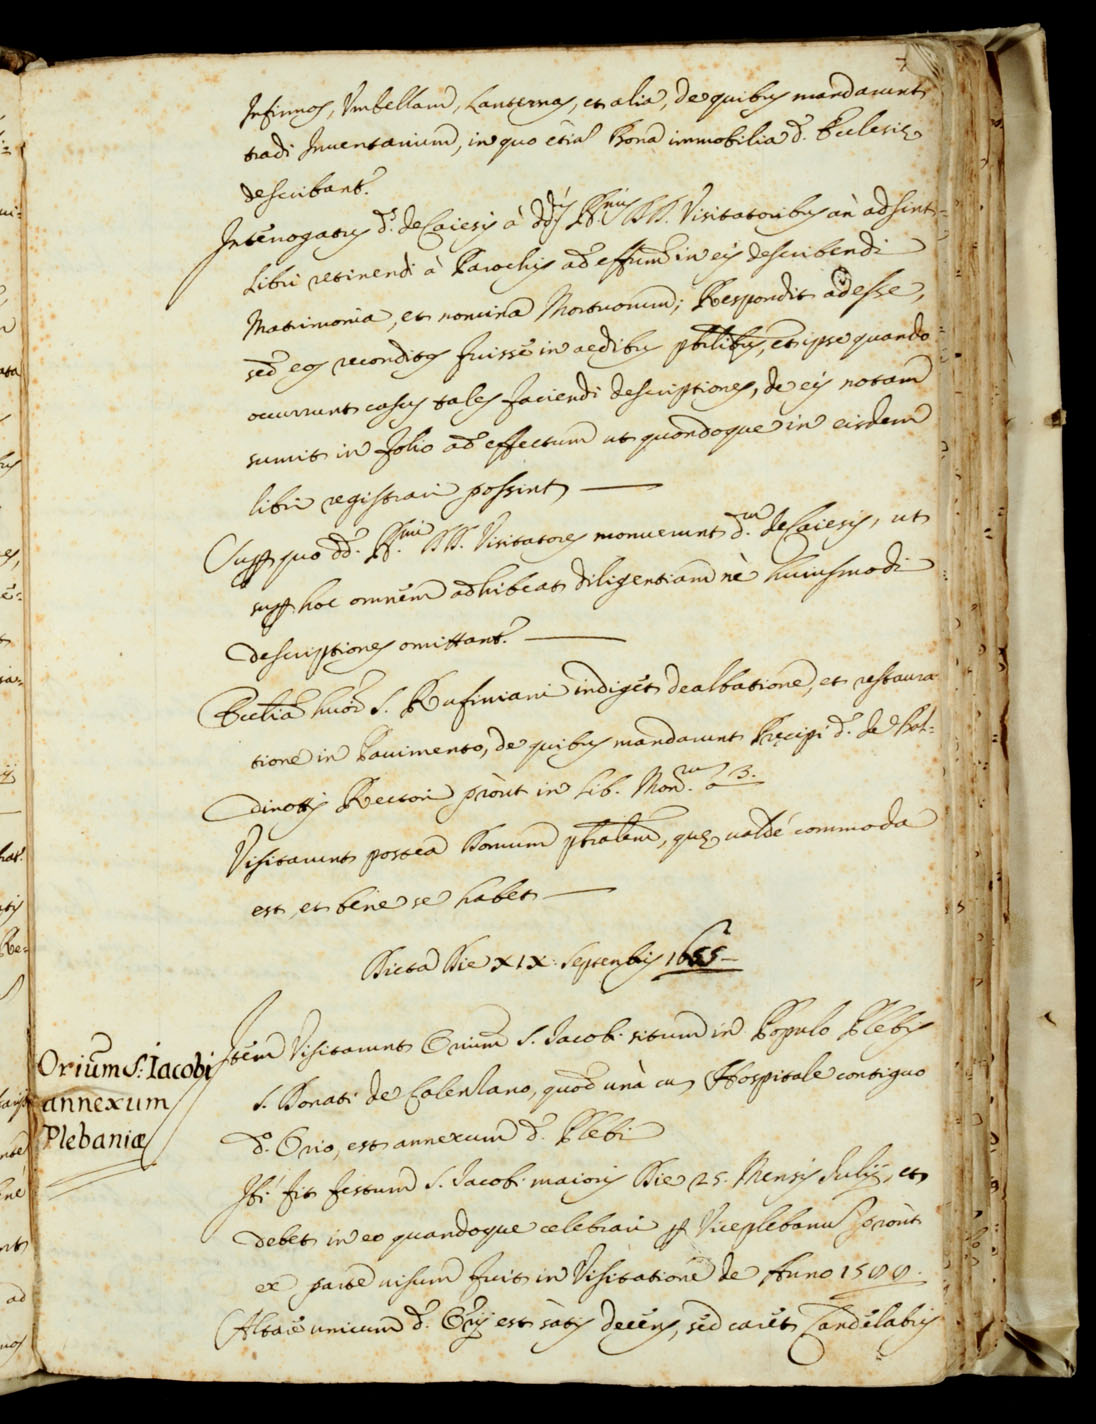 7
Infirmos, Vmbellam, Lanternas, et alia, de quibus mandarunt
tradi Inuentarium, in quo etia Bona immobilia d. Ecclesię
describant.
Interrogatus d.s de Caiesis à dd.is RR.mis DD. Visitatoribus an adsint
Libri retinendi à Parochis ad effum in eis describendi
Matrimonia, et nomina Mortuorum; Respondit adesse,
sed eos reconditos fuisse in aedibus pbtlibus, et ipse quando
occurrunt casus tales faciendi descriptiones, de eis notam
sumit in folio ad effectum ut quandoque in eisdem
libri registrari possint
Sup quo dd. RR.mi DD. Visitatores monuerunt d.um de Caiesis, ut
sup hoc omnem adhibeat diligentiam nè huiusmodi
descriptiones omittant.
Ecclia huōi S. Rufiniani indiget dealbatione, et restaura
tione in Pauimento, de quibus mandarunt Pręcipi d. de Bal=
dinottis Rectori pròut in Lib. Mon.rum a 3.
Visitarunt postea Domum pbtralem, quę ualdè commoda
est, et bene se habet
Dicta Die XIX. Septembris 1655
Item Visitarunt Orium S. Iacobi situm in Populo Plebis
S. Donati de Calenzano, quod unà cu Hospitale contiguo
d.o Orio, est annexum d. Plebi
Ibi fit festum S. Iacobi maioris Die 25. Mensis Iulij, et
debet in eo quandoque celebrari p Viceplebanu pròut
ex parte uisum fuit in Visitatione de Anno 15
Altare unicum d. Orij est satis decens, sed caret Candelabris
Orium S. Iacobi
annexum
Plebaniæ